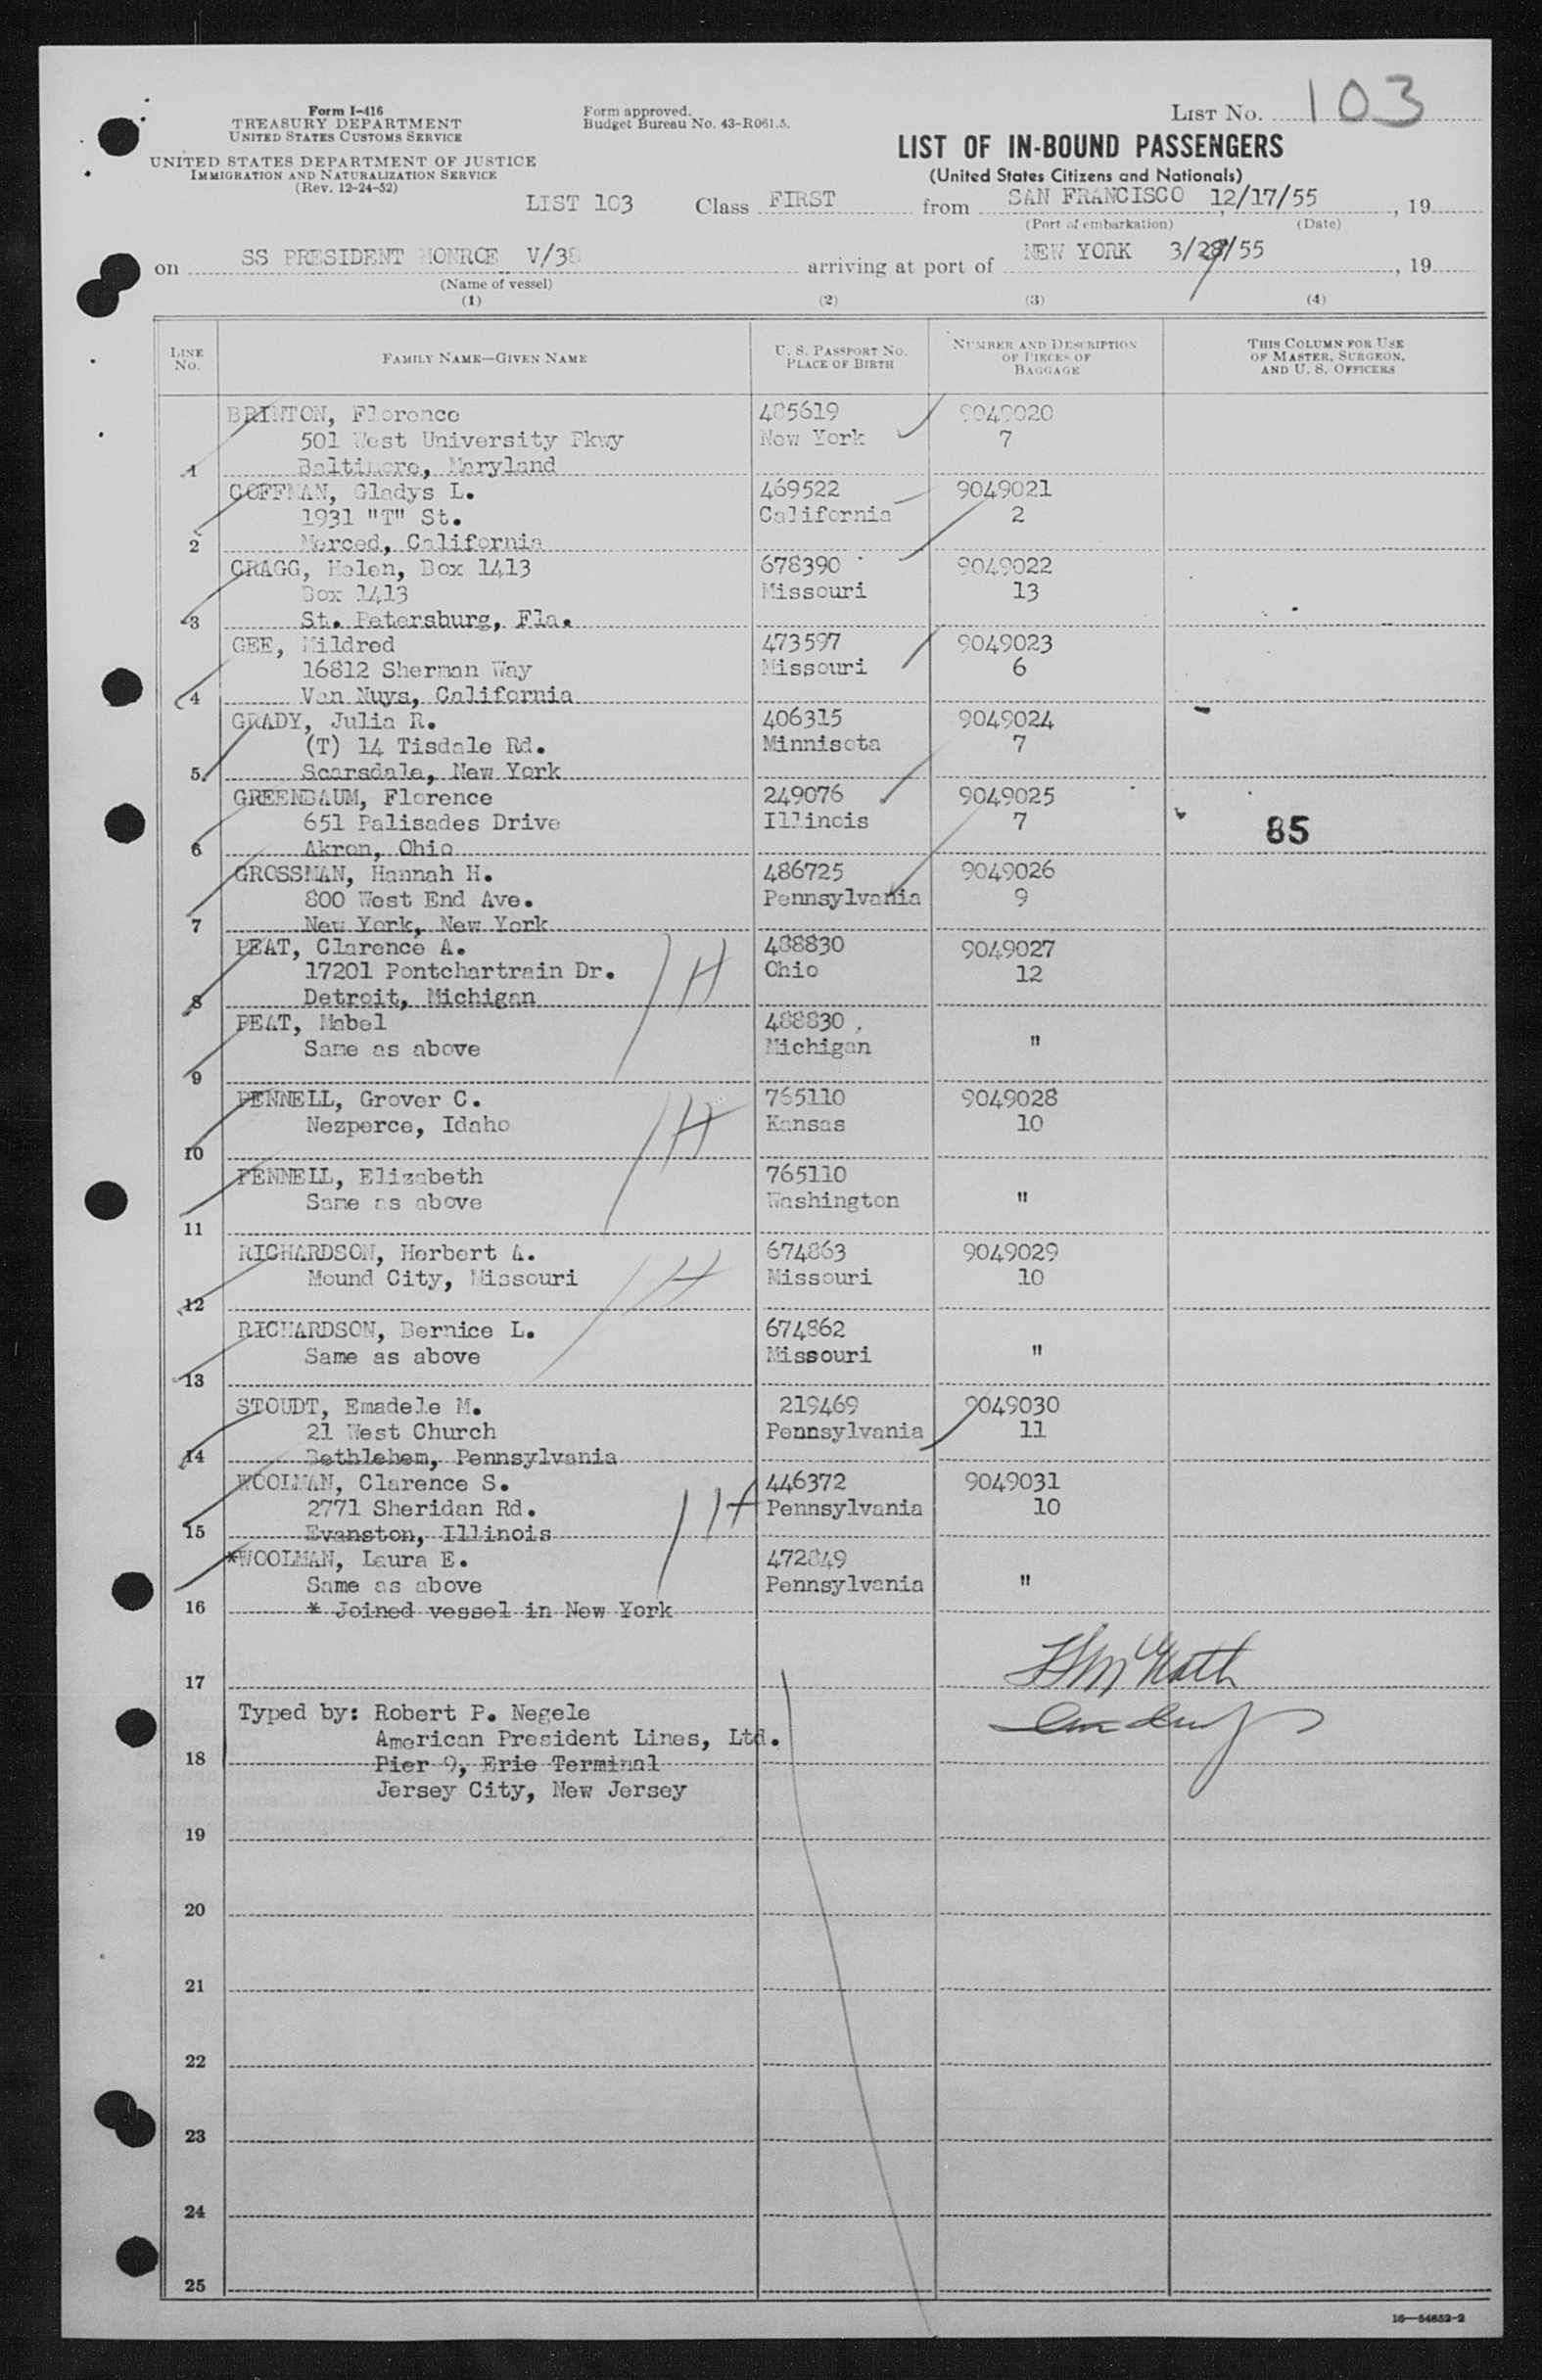 Form I-416
TREASURY DEPARTMENT
UNITED STATES CUSTOMS SERVICE
UNITED STATES DEPARTMENT OF JUSTICE
IMMIGRATION AND NATURALIZATION SERVICE
(Rev. 12-24-52)
Form approved.
Budget Bureau No. 43-R061.5.
LIST NO. 103
LIST OF IN-BOUND PASSENGERS
(United States Citizens and Nationals)
LIST 103 Class FIRST from SAN FRANCISCO, 12/17/55, 19
(Port of embarkation) (Date)
on SS PRESIDENT MONROE V/38 arriving at port of NEW YORK 3/ /55, 19
(Name of vessel)
(1) (2) (3) (4)
LINE NO. FAMILY NAME—GIVEN NAME U. S. PASSPORT NO. PLACE OF BIRTH NUMBER AND DESCRIPTION OF PIECES OF BAGGAGE THIS COLUMN FOR USE OF MASTER, SURGEON, AND U. S. OFFICERS
BRINTON, Florence 485619 9049020
501 West University Pkwy New York 7
1 Baltimore, Maryland
COFFMAN, Gladys L. 469522 9049021
1931 "T" St. California 2
2 Merced, California
CRAGG, Helen, Box 1413 678390 9049022
Box 1413 Missouri 13
3 St. Petersburg, Fla.
GEE, Mildred 473597 9049023
16812 Sherman Way Missouri 6
4 Van Nuys, California
GRADY, Julia R. 406315 9049024
(T) 14 Tisdale Rd. Minnisota 7
5 Scarsdale, New York
GREENBAUM, Florence 249076 9049025
651 Palisades Drive Illinois 7 85
6 Akron, Ohio
GROSSMAN, Hannah H. 486725 9049026
800 West End Ave. Pennsylvania 9
7 New York, New York
PEAT, Clarence A. 488830 9049027
17201 Pontchartrain Dr. Ohio 12
8 Detroit, Michigan
H
PEAT, Mabel 488830
Same as above Michigan "
9
PENNELL, Grover C. 765110 9049028
Nezperce, Idaho Kansas 10
10
H
PENNELL, Elizabeth 765110
Same as above Washington "
11
RICHARDSON, Herbert A. 674863 9049029
Mound City, Missouri Missouri 10
12
H
RICHARDSON, Bernice L. 674862
Same as above Missouri "
13
STOUDT, Emadele M. 219469 9049030
21 West Church Pennsylvania 11
14 Bethlehem, Pennsylvania
WOOLMAN, Clarence S. 446372 9049031
2771 Sheridan Rd. Pennsylvania 10
15 Evanston, Illinois
H
*WOOLMAN, Laura E. 472849
Same as above Pennsylvania "
16 * Joined vessel in New York
17
Typed by: Robert P. Negele
American President Lines, Ltd.
18 Pier 9, Erie Terminal
Jersey City, New Jersey
19
20
21
22
23
24
25
16—54652-2